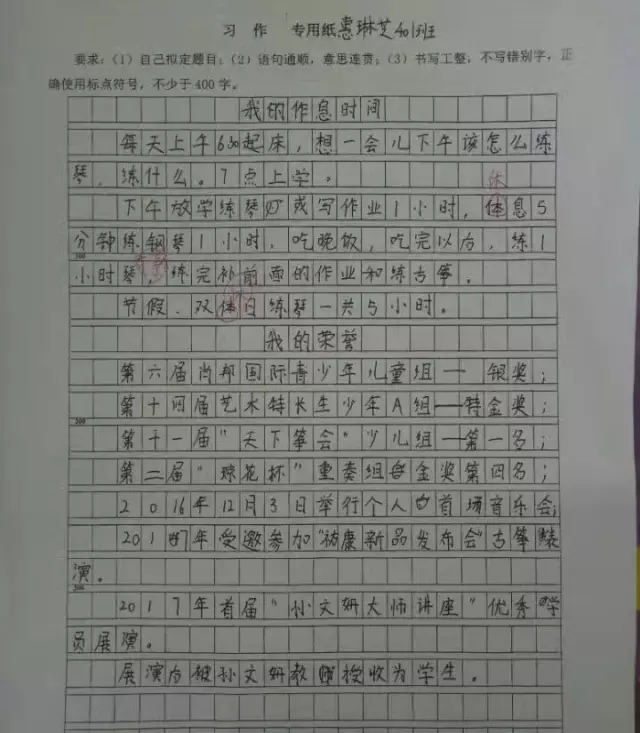 习 作 专用纸 惠琳芝 401班
要求:(1)自己拟定题目;(2)语句通顺,意思连贯;(3)书写工整,不写错别字,正
确使用标点符号,不少于400字。
我的作息时间
每天上午630起床,想一会儿下午该怎么练
琴,练什么。7点上学。
休
下午放学练琴或写作业1小时,体息5
分钟练钢琴1小时,吃晚饭,吃完以后,练1
小时琴,练完补前面的作业和练古筝。
节假、双体日练琴一共5小时。
我的荣誉
第六届肖邦国际青少年儿童组——银奖;
第十四届艺术特长生少年A组——特金奖;
第十一届"天下筝会"少儿组——第一名;
第二届"琼花杯"重奏组金奖第四名;
2016年12月3日举行个人首场音乐会;
2017年受邀参加"祐康新品发布会"古筝表
演。
2017年首届"孙文妍大师讲座"优秀学
员展演。
展演后被孙文妍教授收为学生。